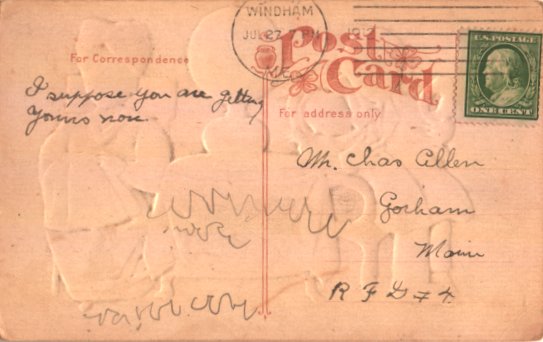 WINDHAM
JUL 27
Post
Card
U.S. POSTAGE
ONE CENT
For Correspondence
I suppose you are getting
yours now.
For address only
Mr. Chas Allen
Gorham
Maine
R F D # 4